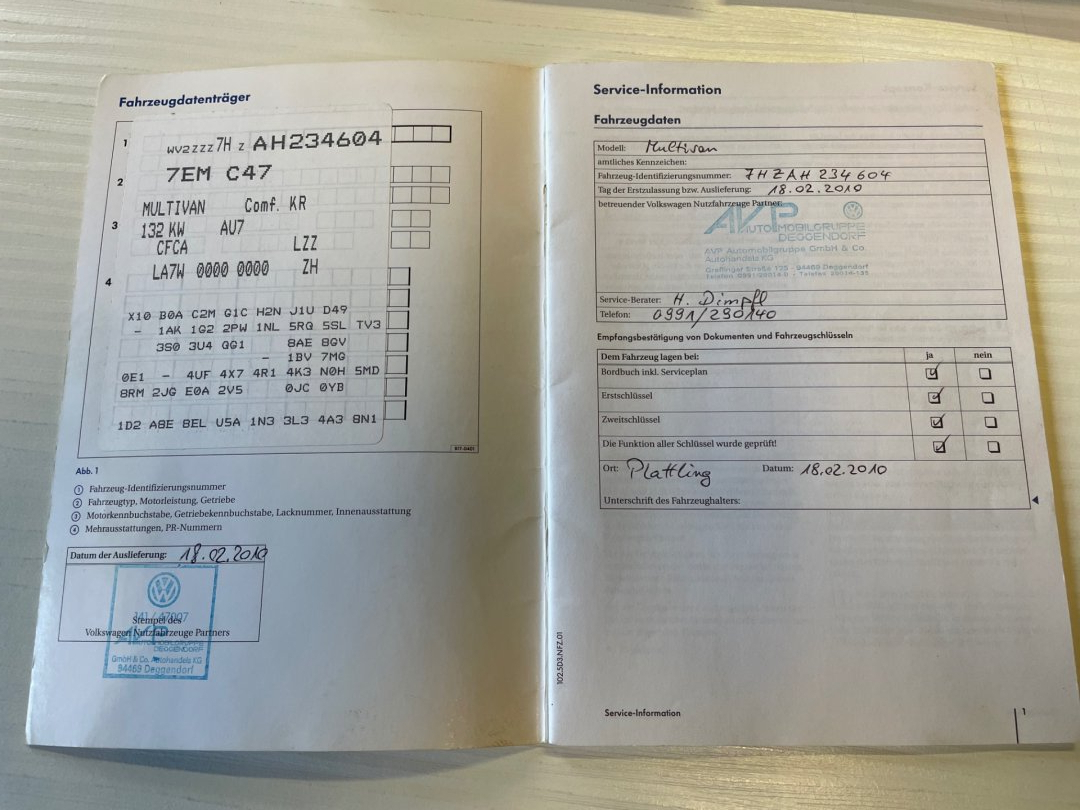 Fahrzeugdatenträger
1 WV2ZZZ7H Z AH234604
2 7EM C47
MULTIVAN Comf. KR
3 132 KW AU7
CFCA LZZ
4 LA7W 0000 0000 ZH
X10 B0A C2M G1C H2N J1U D49
- 1AK 1G2 2PW 1NL 5RQ 5SL TV3
3S0 3U4 GG1 8AE 8GV
- 1BV 7MG
0E1 - 4UF 4X7 4R1 4K3 N0H 5MD
8RM 2JG E0A 2V5 0JC 0YB
1D2 A8E BEL U5A 1N3 3L3 4A3 8N1
Abb. 1
1 Fahrzeug-Identifizierungsnummer
2 Fahrzeugtyp, Motorleistung, Getriebe
3 Motorkennbuchstabe, Getriebekennbuchstabe, Lacknummer, Innenausstattung
4 Mehrausstattungen, PR-Nummern
Datum der Auslieferung: 18.02.2010
Stempel des
Volkswagen Nutzfahrzeuge Partners
AVP
AUTOMOBILGRUPPE
DEGGENDORF
GmbH & Co. Autohandels KG
94469 Deggendorf
Service-Information
Fahrzeugdaten
Modell: Multivan
amtliches Kennzeichen:
Fahrzeug-Identifizierungsnummer: 7HZAH 234 604
Tag der Erstzulassung bzw. Auslieferung: 18.02.2010
betreuender Volkswagen Nutzfahrzeuge Partner:
AVP
AUTOMOBILGRUPPE
DEGGENDORF
AVP Automobilgruppe GmbH & Co.
Autohandels KG
Graflinger Straße 135 - 94469 Deggendorf
Service-Berater: H. Dimpfl
Telefon: 0991/290140
Empfangsbestätigung von Dokumenten und Fahrzeugschlüsseln
Dem Fahrzeug lagen bei: ja nein
Bordbuch inkl. Serviceplan
Erstschlüssel
Zweitschlüssel
Die Funktion aller Schlüssel wurde geprüft!
Ort: Plattling Datum: 18.02.2010
Unterschrift des Fahrzeughalters:
102.5D3.NFZ.01
Service-Information 1